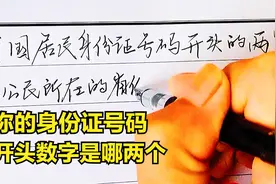 国居民身份证号码开头的两
公民所在的省份
你的身份证号码
开头数字是哪两个